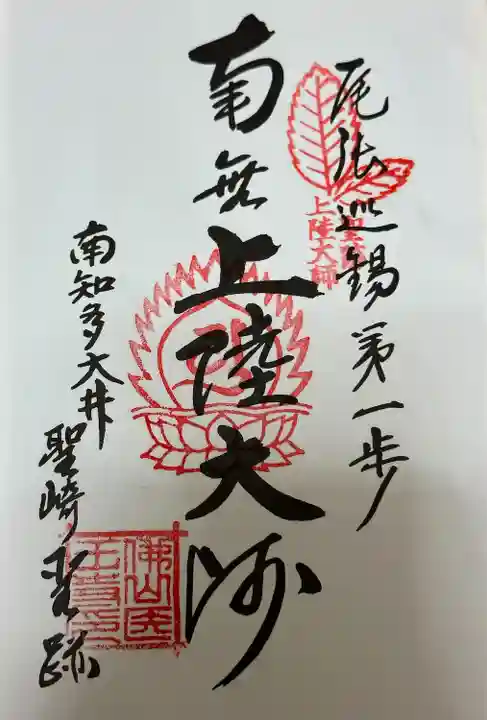 尾張巡錫第一歩
上陸大師
南無上陸大師
南知多大井
聖崎霊跡